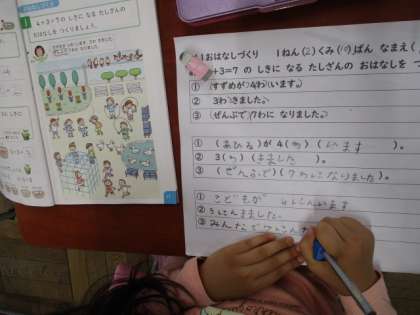 4+3=7の しきに なる たしざんの
おはなしを つくりましょう。
1おはなしづくり 1ねん(2)くみ( )ばん なまえ(
+3=7 の しきに なる たしざんの おはなしを つ
① (すずめが)4わ(います。)
② 3わ(きました。)
③ (ぜんぶで)7わに なりました。)
① (あひる)が 4(わ)(います)。
② 3(わ)(きました)。
③ (ぜんぶで)(7わになりました)。
① こどもが 4にんいます
② 3にんきました。
③ みんなで7にん